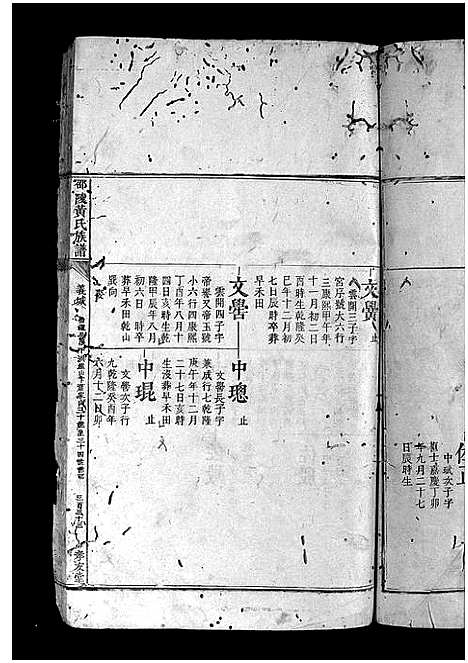 中珷次子字
順士嘉慶丁卯
年九月二十七
日辰時生
文黌
止
雲開三子字
宮庠號大六行
三康熙甲午年
十一月初二日
酉時生乾隆癸
巳年十二月初
七日辰時卒葬
早禾田
文嚳
雲開四子字
帝嚳又帝玉號
小六行四康熙
丁酉年八月十
四日亥時生乾
隆甲辰年八月
初六日時卒
葬早禾田乾山
巽向
中璁
止
文嚳長子字
兼威行七乾隆
庚午年十二月
二十七日亥時
生沒葬早禾田
中琨
止
文嚳次子行
九乾隆癸酉年
六月十二日卯
邵陵黃氏族譜
孝友堂